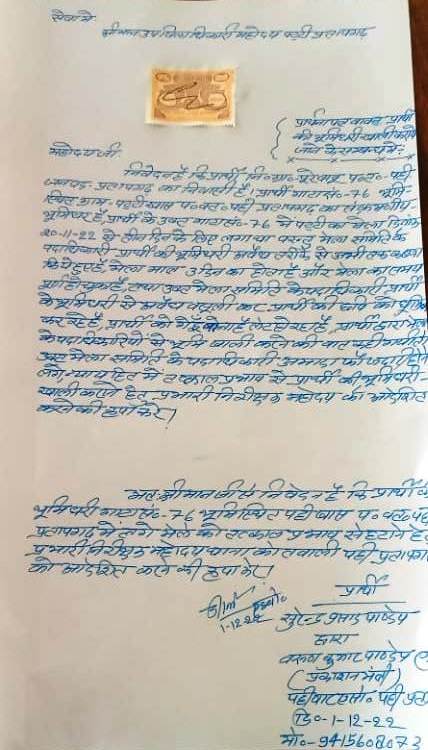 सेवा मे
श्रीमान उप जिलाधिकारी महोदय पट्टी प्रतापगढ़
प्रार्थना पत्र बावत प्रार्थी
की भूमिधरी खाली कराये
जाने के सम्बन्ध मे।
महोदय जी,
निवेदन है कि प्रार्थी नि० ग्रा० पट्टी
जनपद- प्रतापगढ़ का निवासी है। प्रार्थी गाटा सं०-76 भूमि-
स्थित ग्राम- पट्टी खास प० व त० पट्टी प्रतापगढ़ का
भूमिधर है, प्रार्थी के उक्त गाटा सं०-76 में पट्टी का मेला दिनांक
20-11-22 से तीन दिन के लिए लगा था परन्तु मेला समिति के
पदाधिकारी प्रार्थी की भूमिधरी अवैध तरीके से अभी तक कब्जा
किये हुए हैं, मेला मात्र 3 दिन का होता है और मेला का समय
हो चुका है, तथा उक्त मेला समिति के पदाधिकारी प्रार्थी
के भूमिधरी से अवैध वसूली कर प्रार्थी की
कर रहे हैं, प्रार्थी को गेहूँ बोना है लेट हो रहा है, प्रार्थी द्वारा मेला
के पदाधिकारियों से भूमि खाली करने की बात कही गयी
उक्त मेला समिति के पदाधिकारी अमादा फौजदारी होने
लगे, न्याय हित में तत्काल प्रभाव से प्रार्थी की भूमिधरी-
खाली कराने हेतु प्रभारी निरीक्षक महोदय को आदेशित
करने की कृपा करें।
अतः श्रीमान जी से निवेदन है कि प्रार्थी के
भूमिधरी गाटा सं०-76 भूमिस्थित पट्टी खास प० व त० पट्टी
प्रतापगढ़ में लगे मेले को तत्काल प्रभाव से हटाने हेतु
प्रभारी निरीक्षक महोदय थाना कोतवाली पट्टी प्रतापगढ़
को आदेशित करने की कृपा करें।
प्रार्थी
1-12-22
सुरेन्द्र प्रसाद पाण्डेय
द्वारा
वरुण कुमार पाण्डेय
(प्रकाशन मंत्री)
पट्टी
दि०-1-12-22
मो०-9415608073